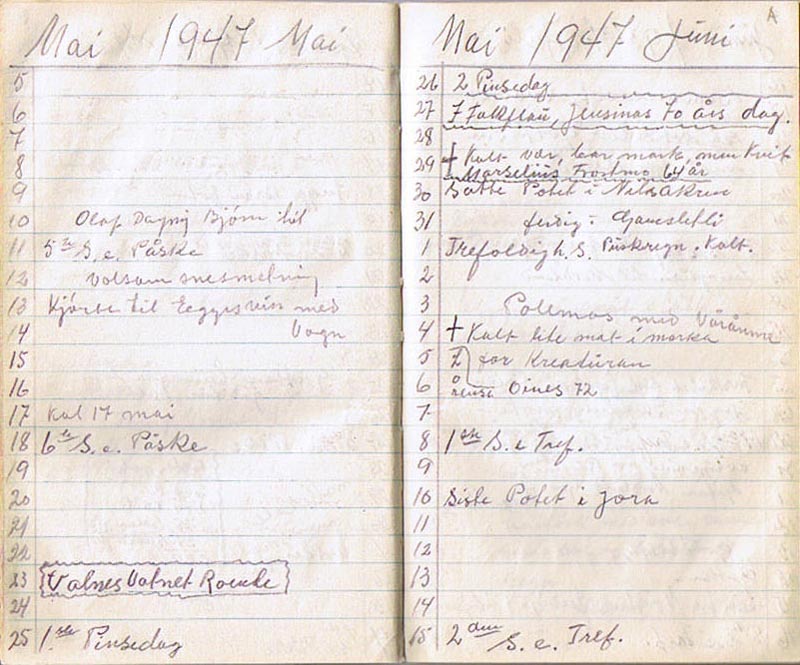 Mai 1947 Mai
5
6
7
8
9
10 Olaf Bjørn til
11 5te S. e. Påske
12 volsom snesmelning
13 Kjørte til med
14 Vogn
15
16
17 Kal 17 mai
18 6te S. e. Påske
19
20
21
22
23 Valnes Vatnet
24
25 1ste Pinsedag
Mai 1947 Juni
A
26 2 Pinsedag
27 7 Jensinas 70 års dag.
28
29 + Kalt vær, bar mark, men Kvit
Marselius Frostmo 64 år
30 Satte Potet i
31 ferdig i
1 Trefoldigh. S. Kalt.
2
3 med Våronna
4 + Kalt lite mat i marka
5 for Kreaturan
6 Oines 72
7
8 1ste S. e Tref.
9
10 Siste Potet i jora
11
12
13
14
15 2den S. e. Tref.